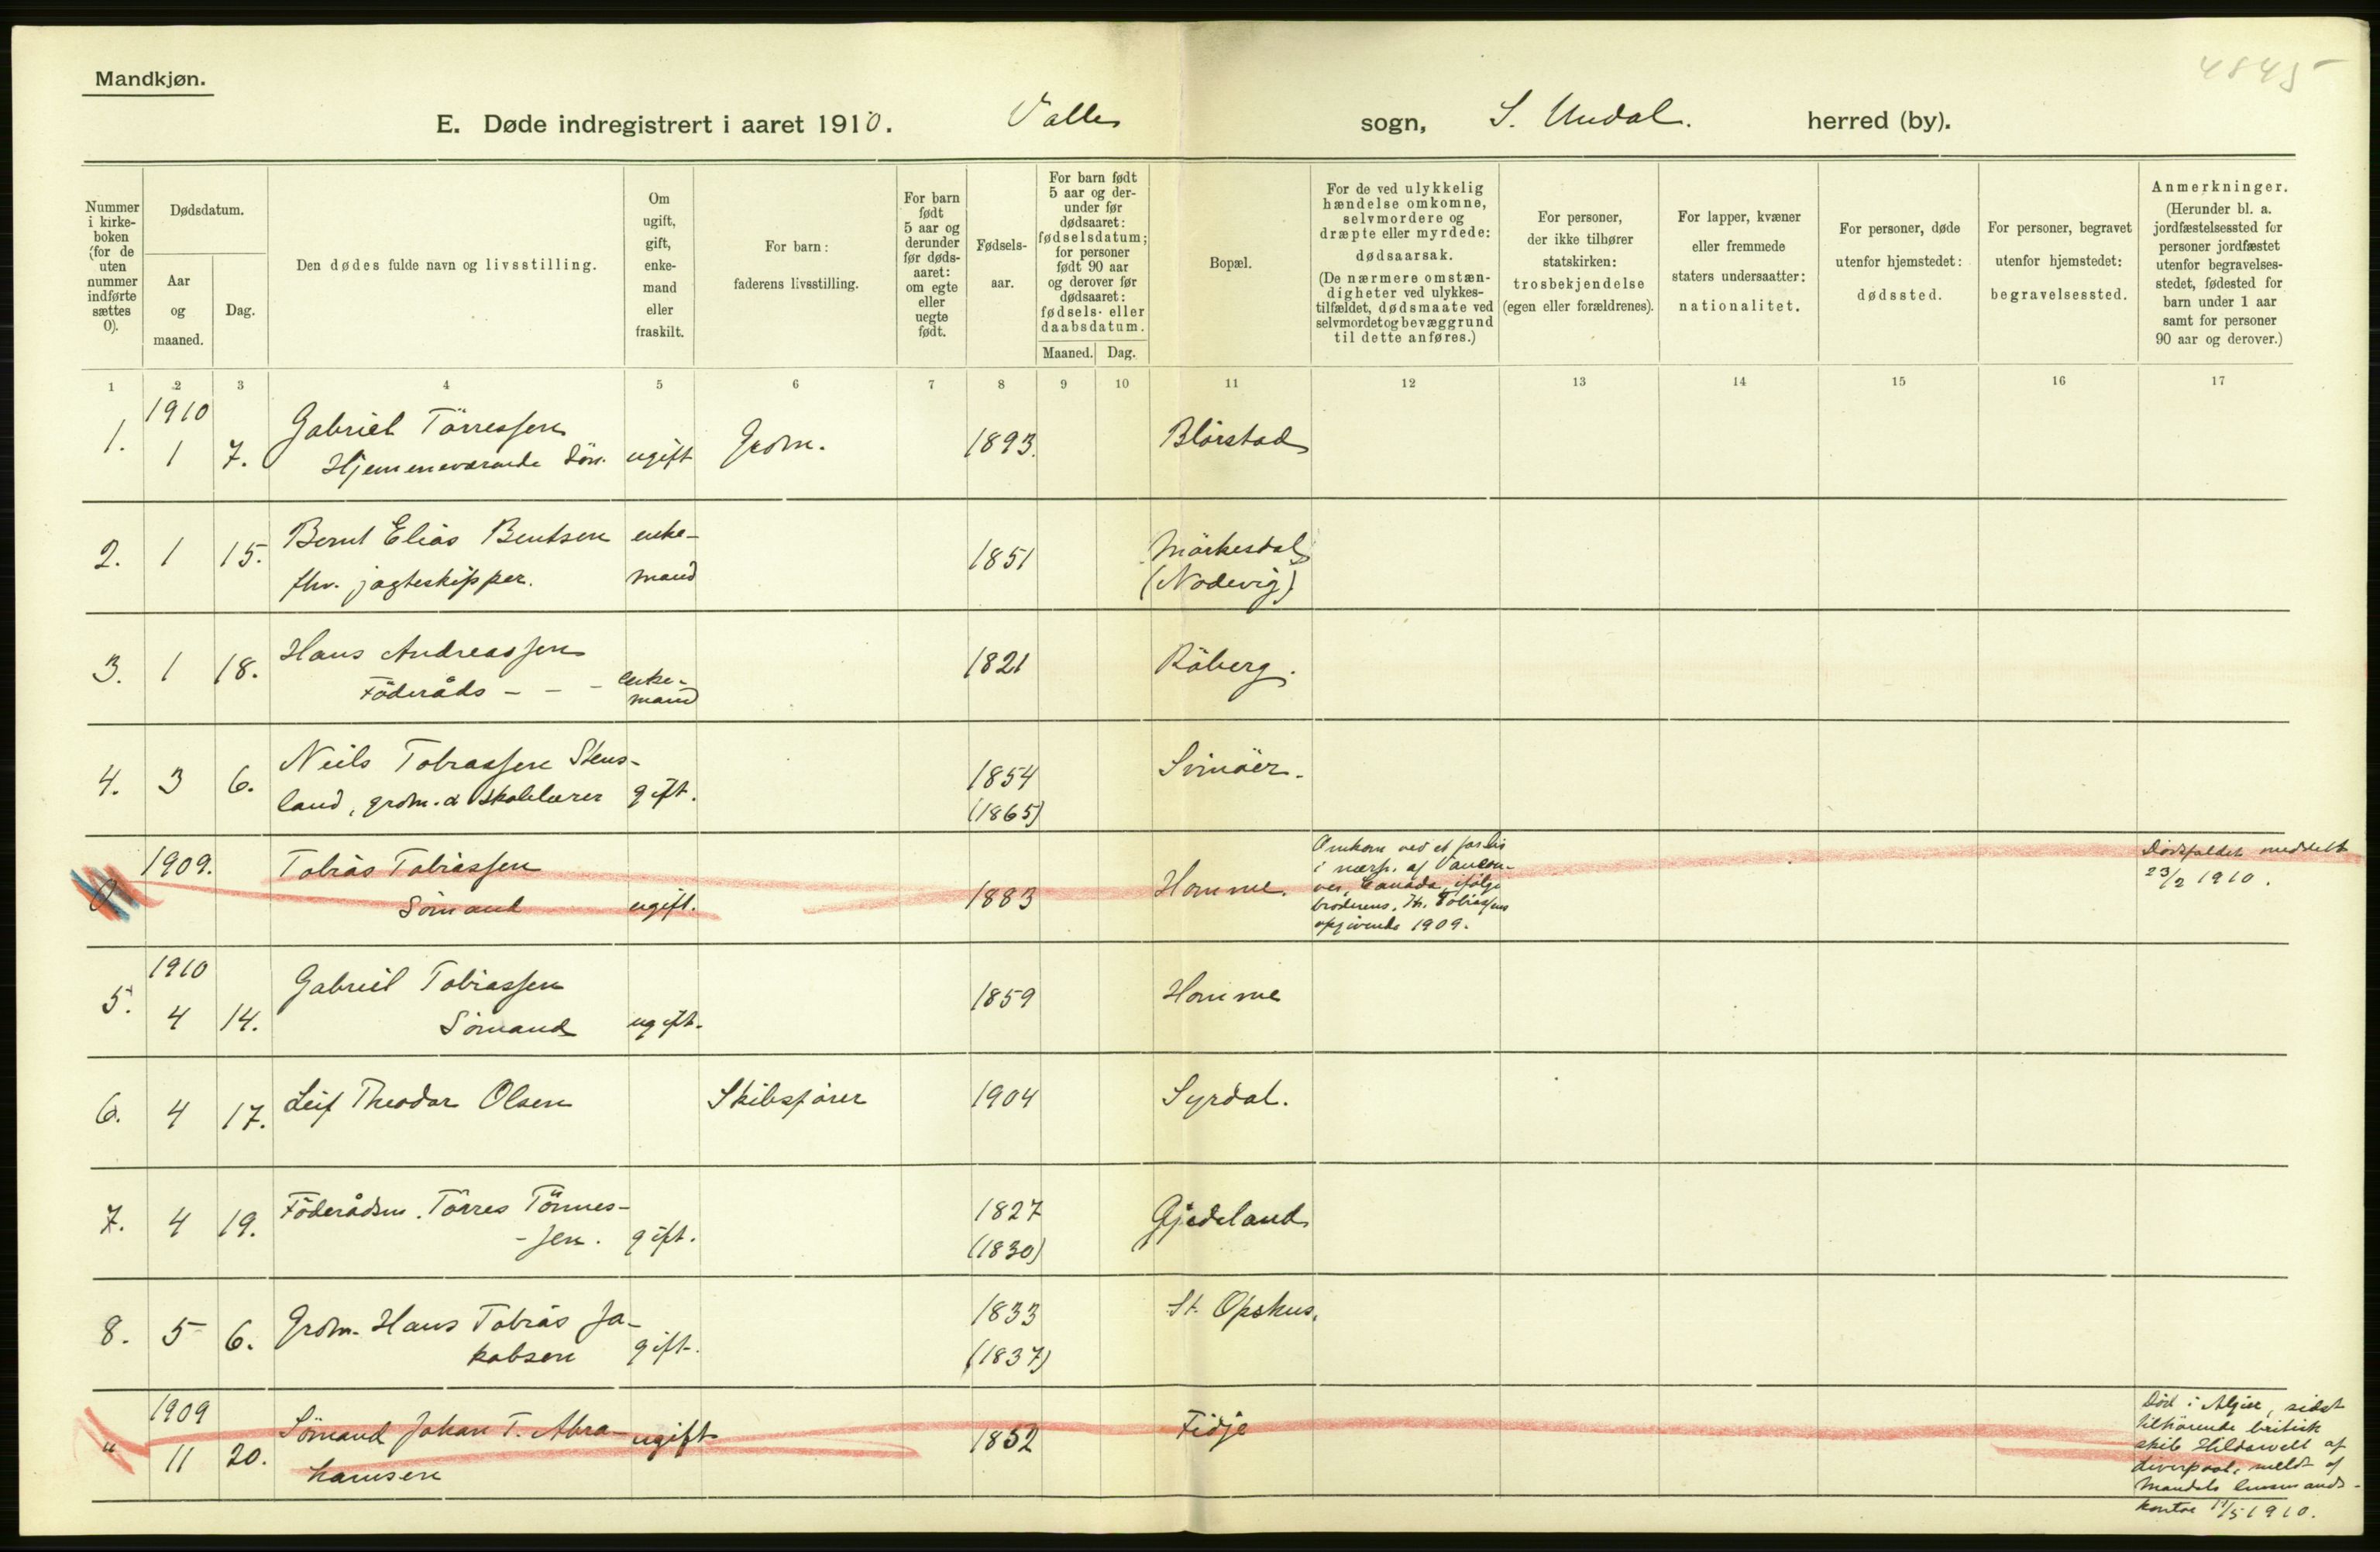 4845
Mandkjøn.
E. Døde indregistrert i aaret 1910. Valle sogn, S. Undal. herred (by).
Nummer i kirke-boken (for de uten nummer indførte sættes 0).
Dødsdatum.
Aar og maaned.
Dag.
Den dødes fulde navn og livsstilling.
Om ugift, gift, enke-mand eller fraskilt.
For barn: faderens livsstilling.
For barn født 5 aar og derunder før døds-aaret: om egte eller uegte født.
Fødsels-aar.
For barn født 5 aar og der-under før dødsaaret: fødselsdatum; for personer født 90 aar og derover før dødsaaret: fødsels- eller daabsdatum.
Maaned. Dag.
Bopæl.
For de ved ulykkelig hændelse omkomne, selvmordere og dræpte eller myrdede: dødsaarsak.
(De nærmere omstæn-digheter ved ulykkes-tilfældet, dødsmaate ved selvmordet og bevæggrund til dette anføres.)
For personer, der ikke tilhører statskirken: trosbekjendelse (egen eller forældrenes).
For lapper, kvæner eller fremmede staters undersaatter: nationalitet.
For personer, døde utenfor hjemstedet: dødssted.
For personer, begravet utenfor hjemstedet: begravelsessted.
Anmerkninger.
(Herunder bl. a. jordfæstelsessted for personer jordfæstet utenfor begravelses-stedet, fødested for barn under 1 aar samt for personer 90 aar og derover.)
1 2 3 4 5 6 7 8 9 10 11 12 13 14 15 16 17
1910
1. 1 7. Gabriel Törressen
Hjemmeværende sön. ugift Grdm. 1893. Blörstad
2. 1 15. Bernt Elias Bentsen enke-
fhv. jagteskipper. mand 1851 Mörkesdal
(Nodevig)
3. 1 18. Hans Andreassen
Föderåds - - - enke-
mand 1821 Råberg.
4. 3 6. Neils Tobiassen Stens-
land, grdm. & skolelærer gift. 1854
(1865) Svinöer.
0 1909. Tobias Tobiassen
Sömand ugift. 1883 Homme.
Omkom ved et forlis
i nærh. af Vancou-
ver, Canada, ifölge
broderens, Th. Tobiassens
opgivende 1909.
Dödsfaldet meddelt
23/2 1910.
1910
5. 4 14. Gabriel Tobiassen
Sömand ugift. 1859 Homme
6. 4 17. Leif Theodor Olsen Skibsförer 1904 Syrdal.
7. 4 19. Föderådsm. Törres Tönnes-
-sen. gift. 1827
(1830) Gjedeland
8. 5 6. Grdm. Hans Tobias Ja-
kobsen gift. 1833
(1837) St. Opskus.
1909
" 11 20. Sömand Johan T. Abra-
hamsen ugift 1852 Fidje
Död i Algier, sidst
tilhörende britisk
skib Hildawell af
Liverpool, meldt af
Mandals lensmands-
kontor 11/5 1910.